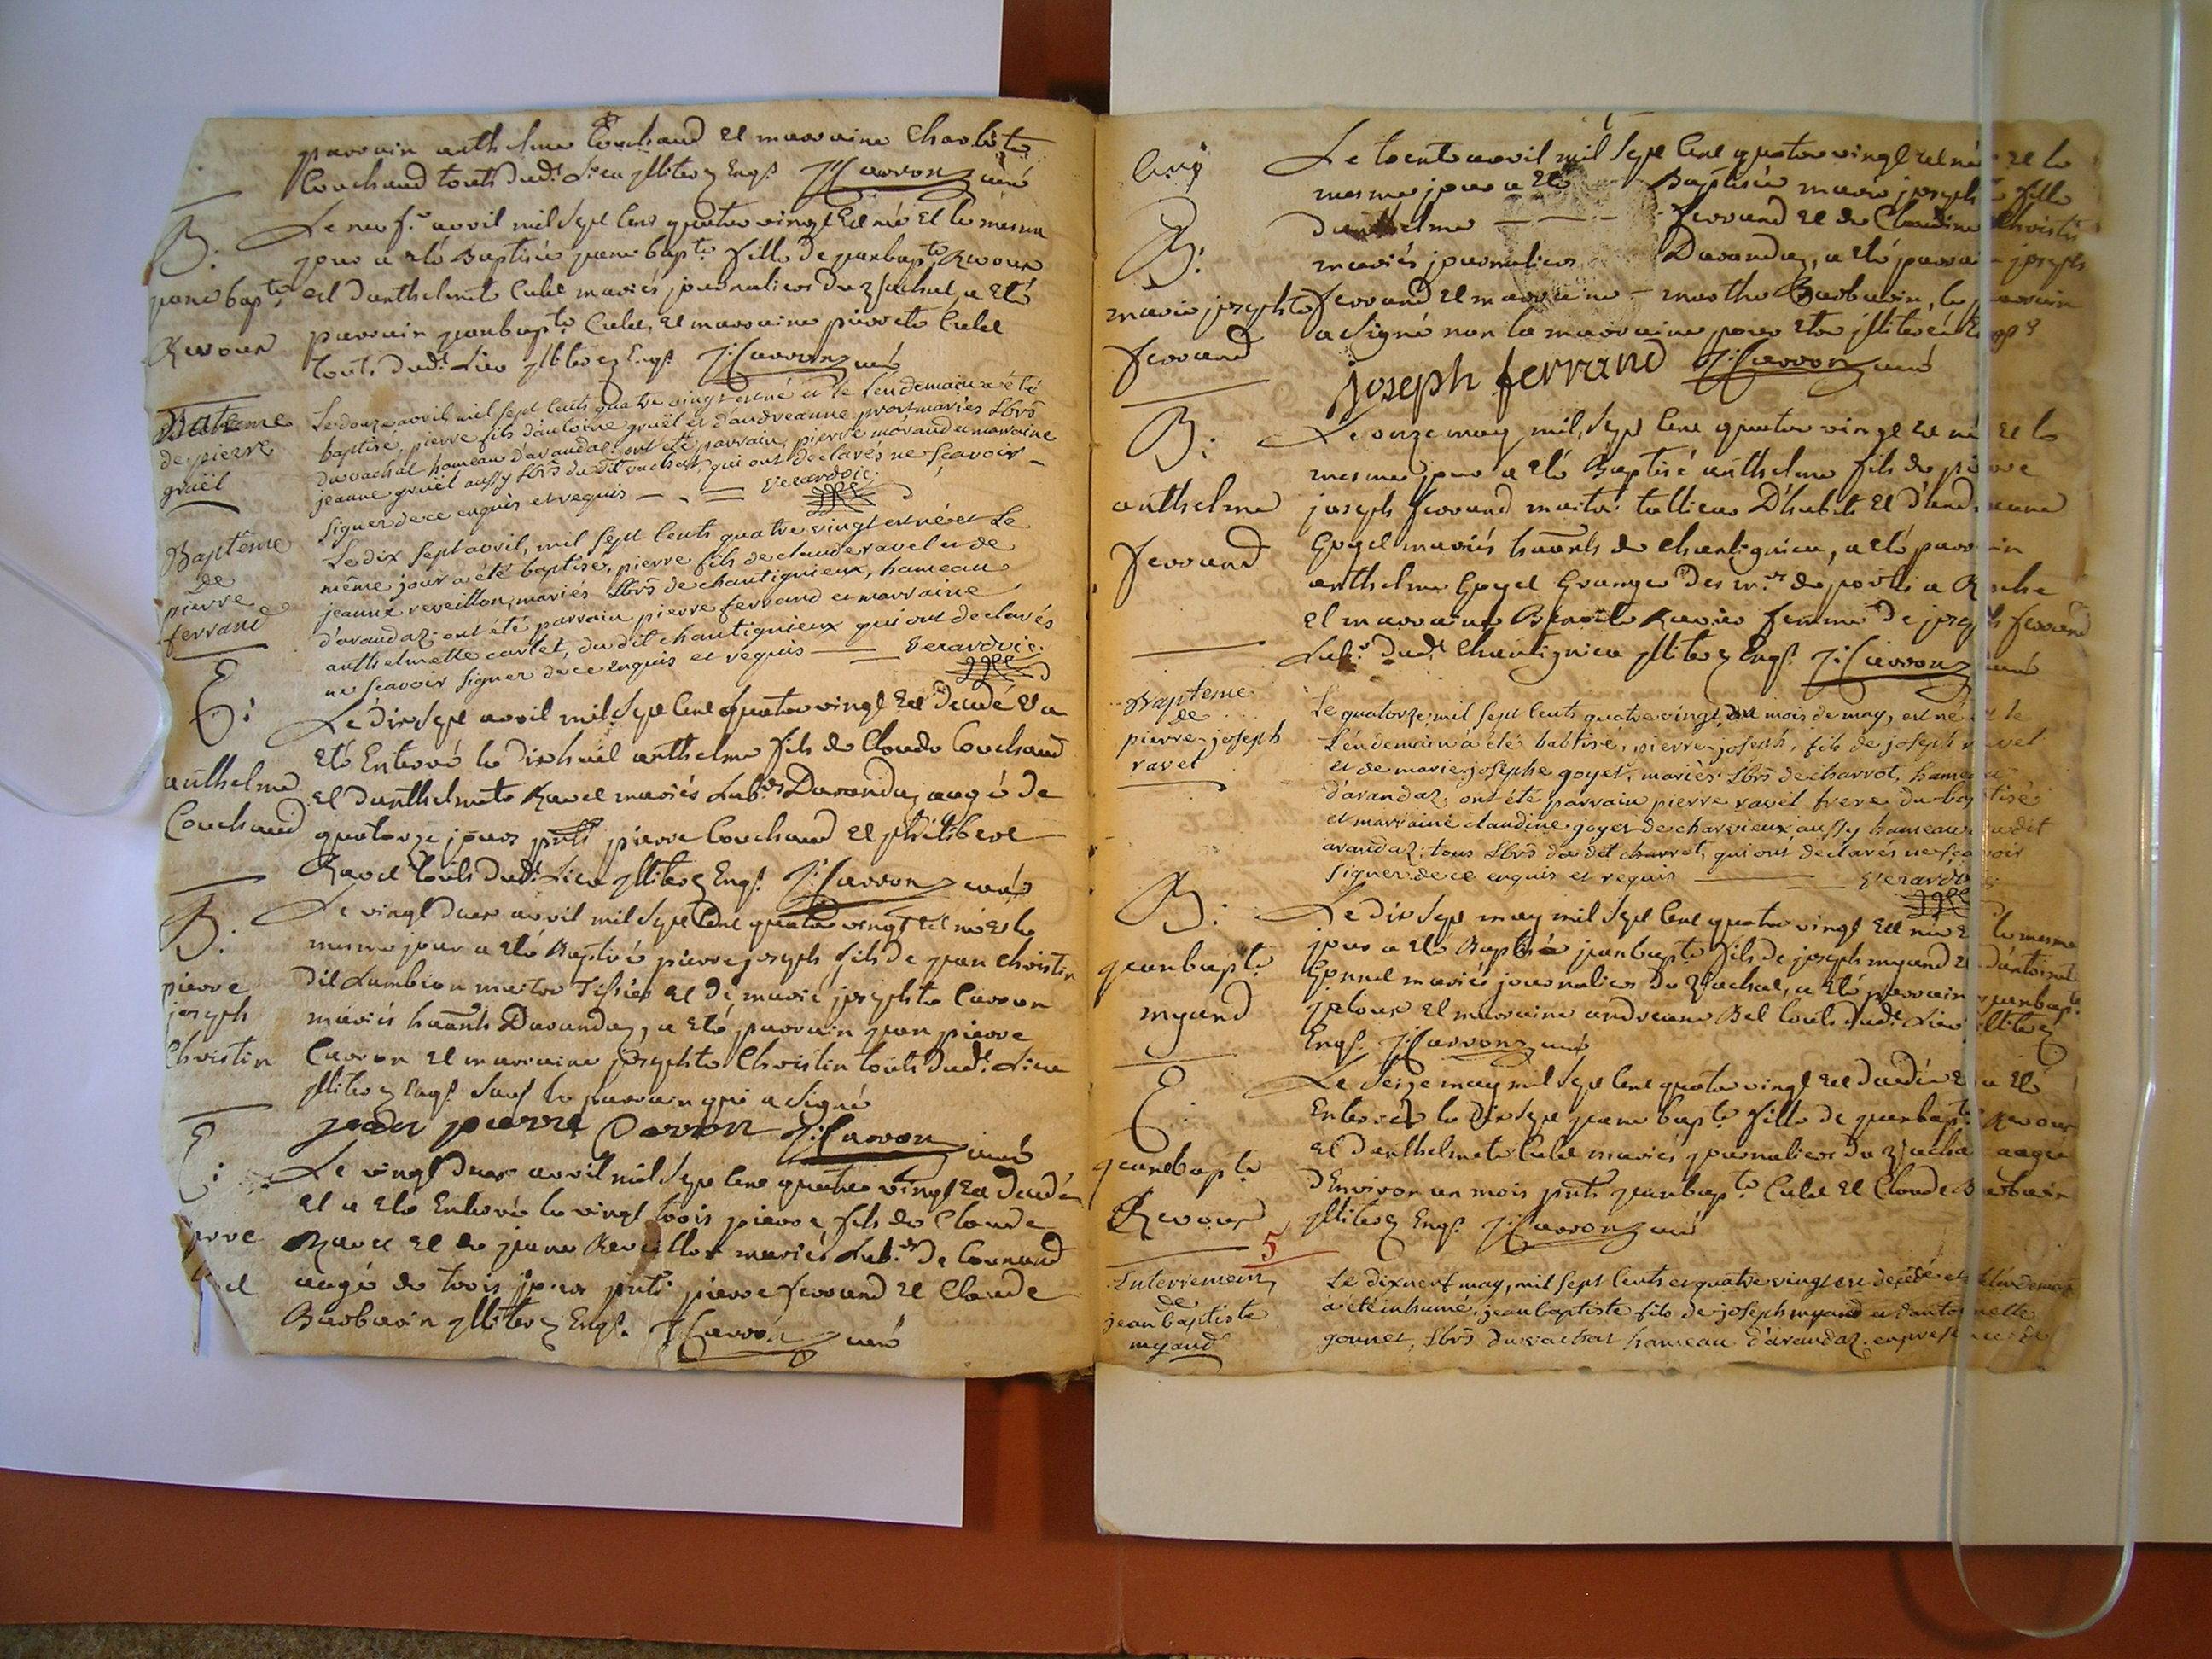 parrain anthelme Couchand et marraine Charlote
Couchand touts dudt Lieu illiterez Enqs J: Carron curé
B:
jane bapte
Revour
Le neuf avril mil Sept Cens quatre vingt Est né Et le mesme
jour a eté Baptisée jane bapte fille de janbapte Revour
et d'anthelmete Culet mariés journaliers du vachat, a eté
parrain janbapte Culet, et marraine pierrete Culet
touts dudt Lieu illiterez Enqs J: Carron curé
Batteme
de pierre
gruël
Le douze avril, mil sept Cents quatre vingt est né et le Lendemain a été
baptisé, pierre fils d'antoine gruël et d'andreanne prost mariés Lbrs
du vachat hameau d'arandaz: ont été parrain, pierre morand et marraine
jeanne gruël aussy Lbrs du dit vachat, qui ont declarés ne Scavoir
signer de ce enquis et requis verard vic:
Baptême
de
pierre
ferrand
Le dix sept avril, mil sept Cents quatre vingt est né et Le
même jour a été baptisé, pierre fils de claude ravel et de
jeanne reveillon, mariés Lbrs de chantignieux, hameau
d'arandaz: ont été parrain pierre ferrand et marraine
anthelmette carlet, du dit chantignieux qui ont declarés
ne scavoir signer de ce enquis et requis verard vic:
E:
anthelme
Couchand
Le dixsept avril mil Sept Cent quatre vingt Est decedé Et a
eté Enterré le dixhuit anthelme fils de Claude Couchand
et d'anthelmete Ravel mariés Labrs D'arandaz aagé de
quatorze jours pnts pierre Couchand et philibert
Ravel touts dudt Lieu illiterez Enqs J: Carron curé
B:
pierre
joseph
Christin
Le vingt deux avril mil Sept Cent quatre vingt est né et le
mesme jour a eté Baptisé pierre joseph fils de jean Christin
dit Lambion maitre Tissier et de marie josephte Carron
mariés habts D'arandaz, a eté parrain jean pierre
Carron et marraine josephte Christin touts dudt Lieu
illiterez Enqs Sauf le parrain qui a Signé
jean pierre Carron J: Carron curé
E:
Le vingt deux avril mil Sept Cent quatre vingt Est decedé
et a eté Enterré le vingt trois pierre fils de Claude
Ravel et de jeanne Reveillon mariés Labrs de
aagé de trois jours pnts pierre ferrand et Claude
Barbarin illiterez Enqs J: Carron curé
B:
marie josephte
ferrand
Le trente avril mil Sept Cent quatre vingt est née et le
mesme jour a eté Baptisée marie josephte fille
d'anthelme ferrand et de Claudine Christin
mariés journaliers D'arandaz, a eté parrain joseph
ferrand et marraine marthe Barbarin, le parrain
a Signé non la marraine pour etre illiterée Enqs
joseph ferrand J: Carron curé
B:
anthelme
ferrand
Le onze may mil Sept Cent quatre vingt est né et le
mesme jour a eté Baptisé anthelme fils de pierre
joseph ferrand maitre tallieur D'habits et d'andreanne
Goyet mariés habts de Chantignieu, a eté parrain
anthelme Goyet Granger des mrs de
et marraine Benoite Ravier femme de joseph ferrand
Labr dudt Chantignieu illiterez Enqs J: Carron curé
Bapteme
de
pierre-joseph
ravet
Le quatorze, mil sept Cents quatre vingt, du mois de may, est né et le
Lendemain a été babtisé, pierre-joseph, fils de joseph ravet
et de marie-josephe goyet, mariés Lbrs de charvot, hameau
d'arandaz; ont été parrain pierre ravet frere du baptisé
et marraine claudine goyet de charvieux aussy hameau du dit
arandaz; tous Lbrs du dit charvot, qui ont declarés ne scavoir
signer de ce enquis et requis verard vic:
B:
jeanbapte
myand
Le dixsept may mil Sept Cent quatre vingt Est né Et le mesme
jour a eté Baptisé janbapte fils de joseph myand et d'antoinete
Gonnet mariés journaliers du vachat, a eté parrain janbapte
et marraine andreanne Bel touts dudt Lieu illiterez
Enqs J: Carron curé
E:
jeanebapte
Revour
Le Seize may mil Sept Cent quatre vingt est decedée Et a eté
Enterrée le dixsept jane bapte fille de janbapte Revour
et d'anthelmete Culet mariés journaliers du vachat aagée
d'Environ un mois pnts janbapte Culet et Claude Barbarin
illiterez Enqs J: Carron curé
5
Enterrement
de
jean baptiste
myand
Le dixneuf may, mil sept Cents et quatre vingt est decédé et le lendemain
a été inhumé, jean baptiste fils de joseph myand et d'antoinette
gonnet, Lbrs du vachat hameau d'arandaz. en presence de